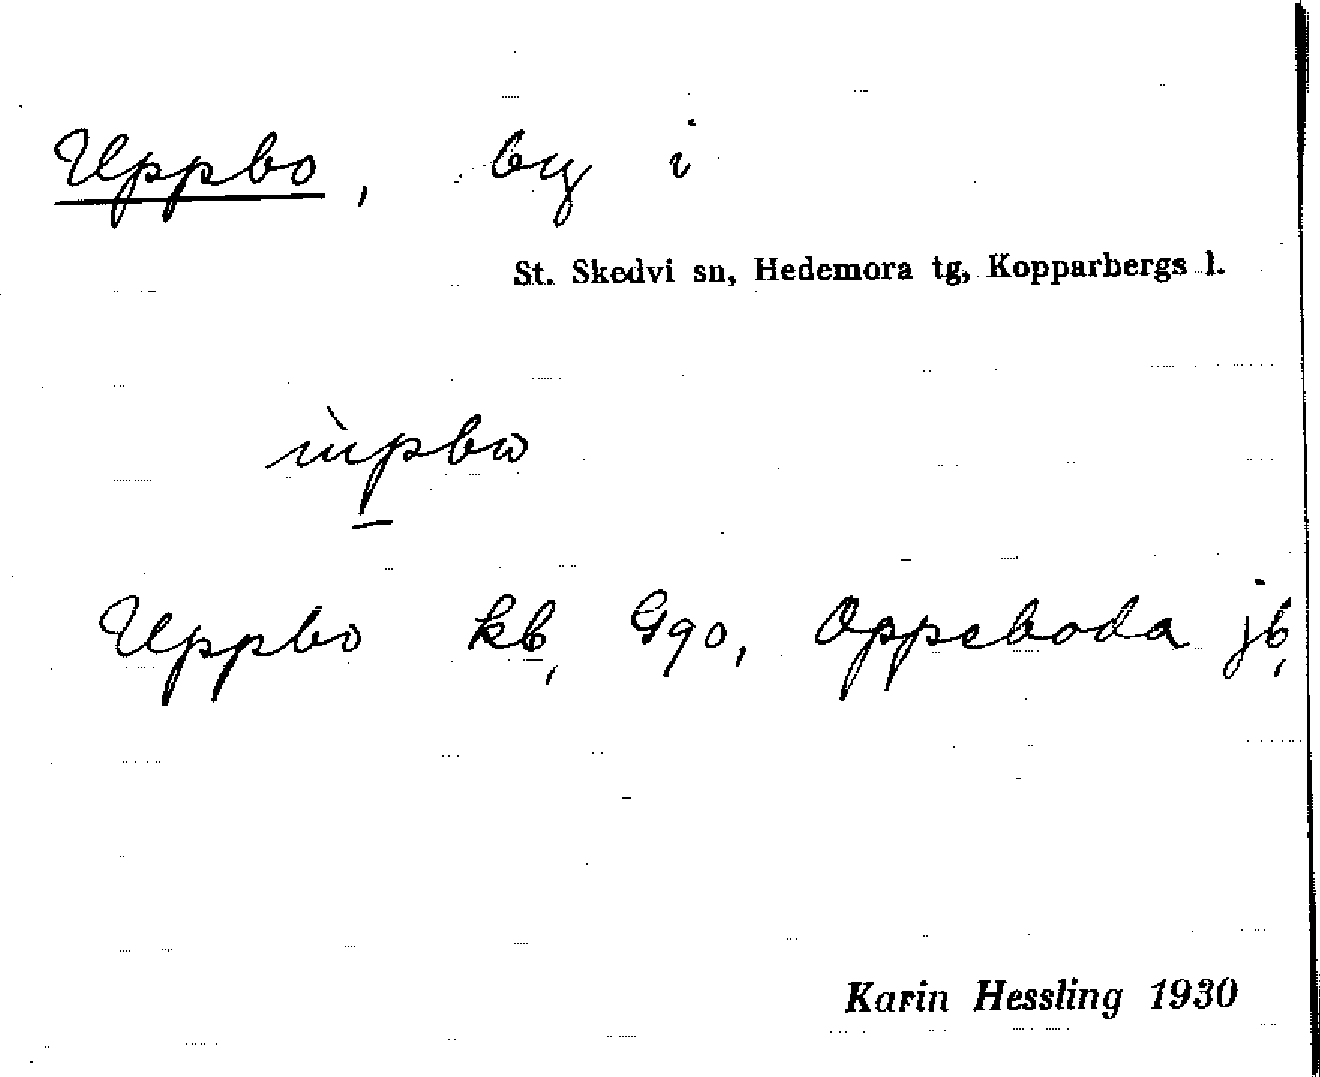 Uppbo, by i
St. Skedvi sn, Hedemora tg, Kopparbergs l.
ùpbω
Uppbo kb, Ggo, Oppeboda jb,
Karin Hessling 1930